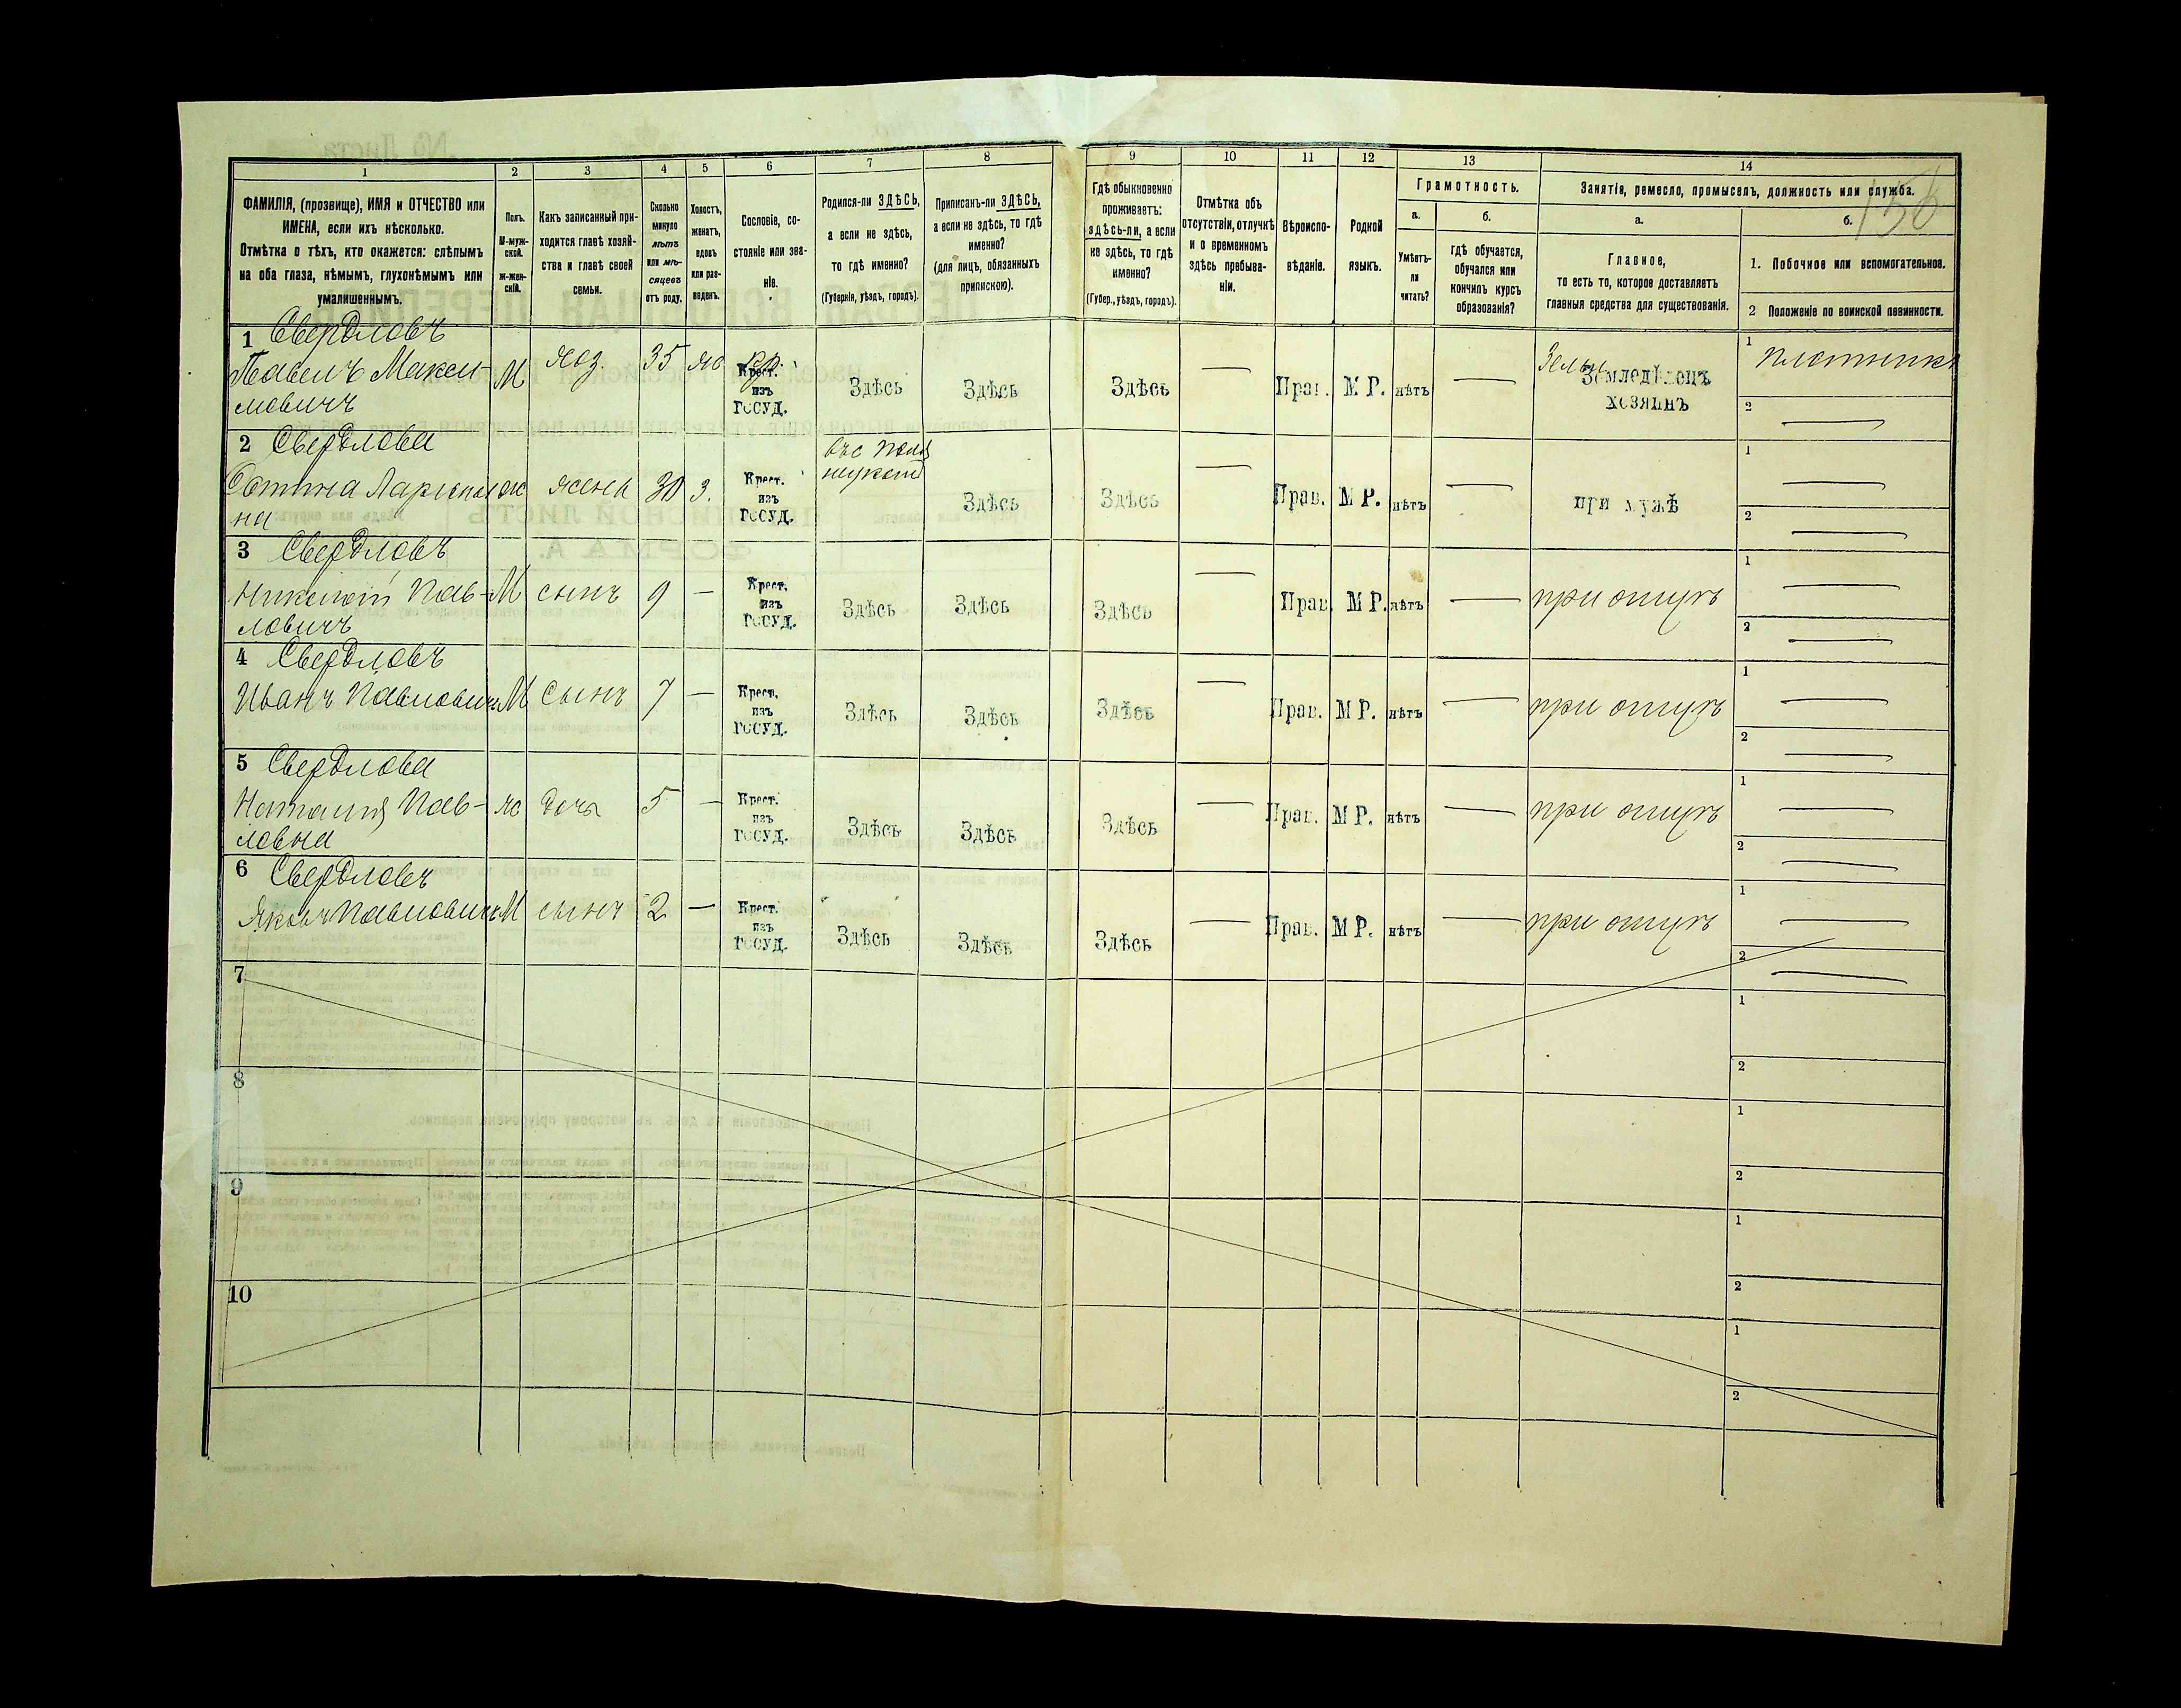 1 2 3 4 5 6 7 8 9 10 11 12 13 14
ФАМИЛІЯ, (прозвище), ИМЯ и ОТЧЕСТВО или
ИМЕНА, если ихъ нѣсколько.
Отмѣтка о тѣхъ, кто окажется: слѣпымъ
на оба глаза, нѣмымъ, глухонѣмымъ или
умалишеннымъ.
Полъ.
М-муж-
ской.
Ж-жен-
скій.
Какъ записанный при-
ходится главѣ хозяй-
ства и главѣ своей
семьи.
Сколько
минуло
лѣтъ
или мѣ-
сяцевъ
отъ роду.
Холостъ,
женатъ,
вдовъ
или раз-
веденъ.
Сословіе, со-
стояніе или зва-
ніе.
Родился-ли ЗДѢСЬ,
а если не здѣсь,
то гдѣ именно?
(Губернія, уѣздъ, городъ).
Приписанъ-ли ЗДѢСЬ,
а если не здѣсь, то гдѣ
именно?
(для лицъ, обязанныхъ
припискою).
Гдѣ обыкновенно
проживаетъ:
здѣсь-ли, а если
не здѣсь, то гдѣ
именно?
(Губер., уѣздъ, городъ).
Отмѣтка объ
отсутствіи, отлучкѣ
и о временномъ
здѣсь пребыва-
ніи.
Вѣроиспо-
вѣданіе.
Родной
языкъ.
Грамотность.
а.
Умѣетъ-
ли
читать?
б.
Гдѣ обучается,
обучался или
кончилъ курсъ
образованія?
Занятія, ремесло, промыселъ, должность или служба.
а.
Главное,
то есть то, которое доставляетъ
главныя средства для существованія.
б.
156
1. Побочное или вспомогательное.
2 Положеніе по воинской повинности.
1 Свердловъ
Павелъ Макси-
мовичъ
М хоз. 35 ж кр.
Крест.
изъ
ГОСУД.
Здѣсь Здѣсь Здѣсь — Прав. М Р. нѣтъ —
Земледѣлецъ
хозяинъ
1 плотникъ
2 —
2 Свердлова
на
ж жена 30 з.
Крест.
изъ
ГОСУД.
Здѣсь Здѣсь — Прав. М Р. нѣтъ — при мужѣ
1 —
2 —
3 Свердловъ
Николай Пав-
ловичъ
М сынъ 9 —
Крест.
изъ
ГОСУД.
Здѣсь Здѣсь Здѣсь — Прав. М Р. нѣтъ — при отцѣ
1 —
2 —
4 Свердловъ
Иванъ Павловичъ
М сынъ 7 —
Крест.
изъ
ГОСУД.
Здѣсь Здѣсь Здѣсь — Прав. М Р. нѣтъ — при отцѣ
1 —
2 —
5 Свердлова
Наталия Пав-
ловна
ж дочь 5 —
Крест.
изъ
ГОСУД.
Здѣсь Здѣсь Здѣсь — Прав. М Р. нѣтъ — при отцѣ
1 —
2 —
6 Свердловъ
Яковъ Павловичъ
М сынъ 2 —
Крест.
изъ
ГОСУД.
Здѣсь Здѣсь Здѣсь — Прав. М Р. нѣтъ — при отцѣ
1 —
2 —
7
1
2
8
1
2
9
1
2
10
1
2